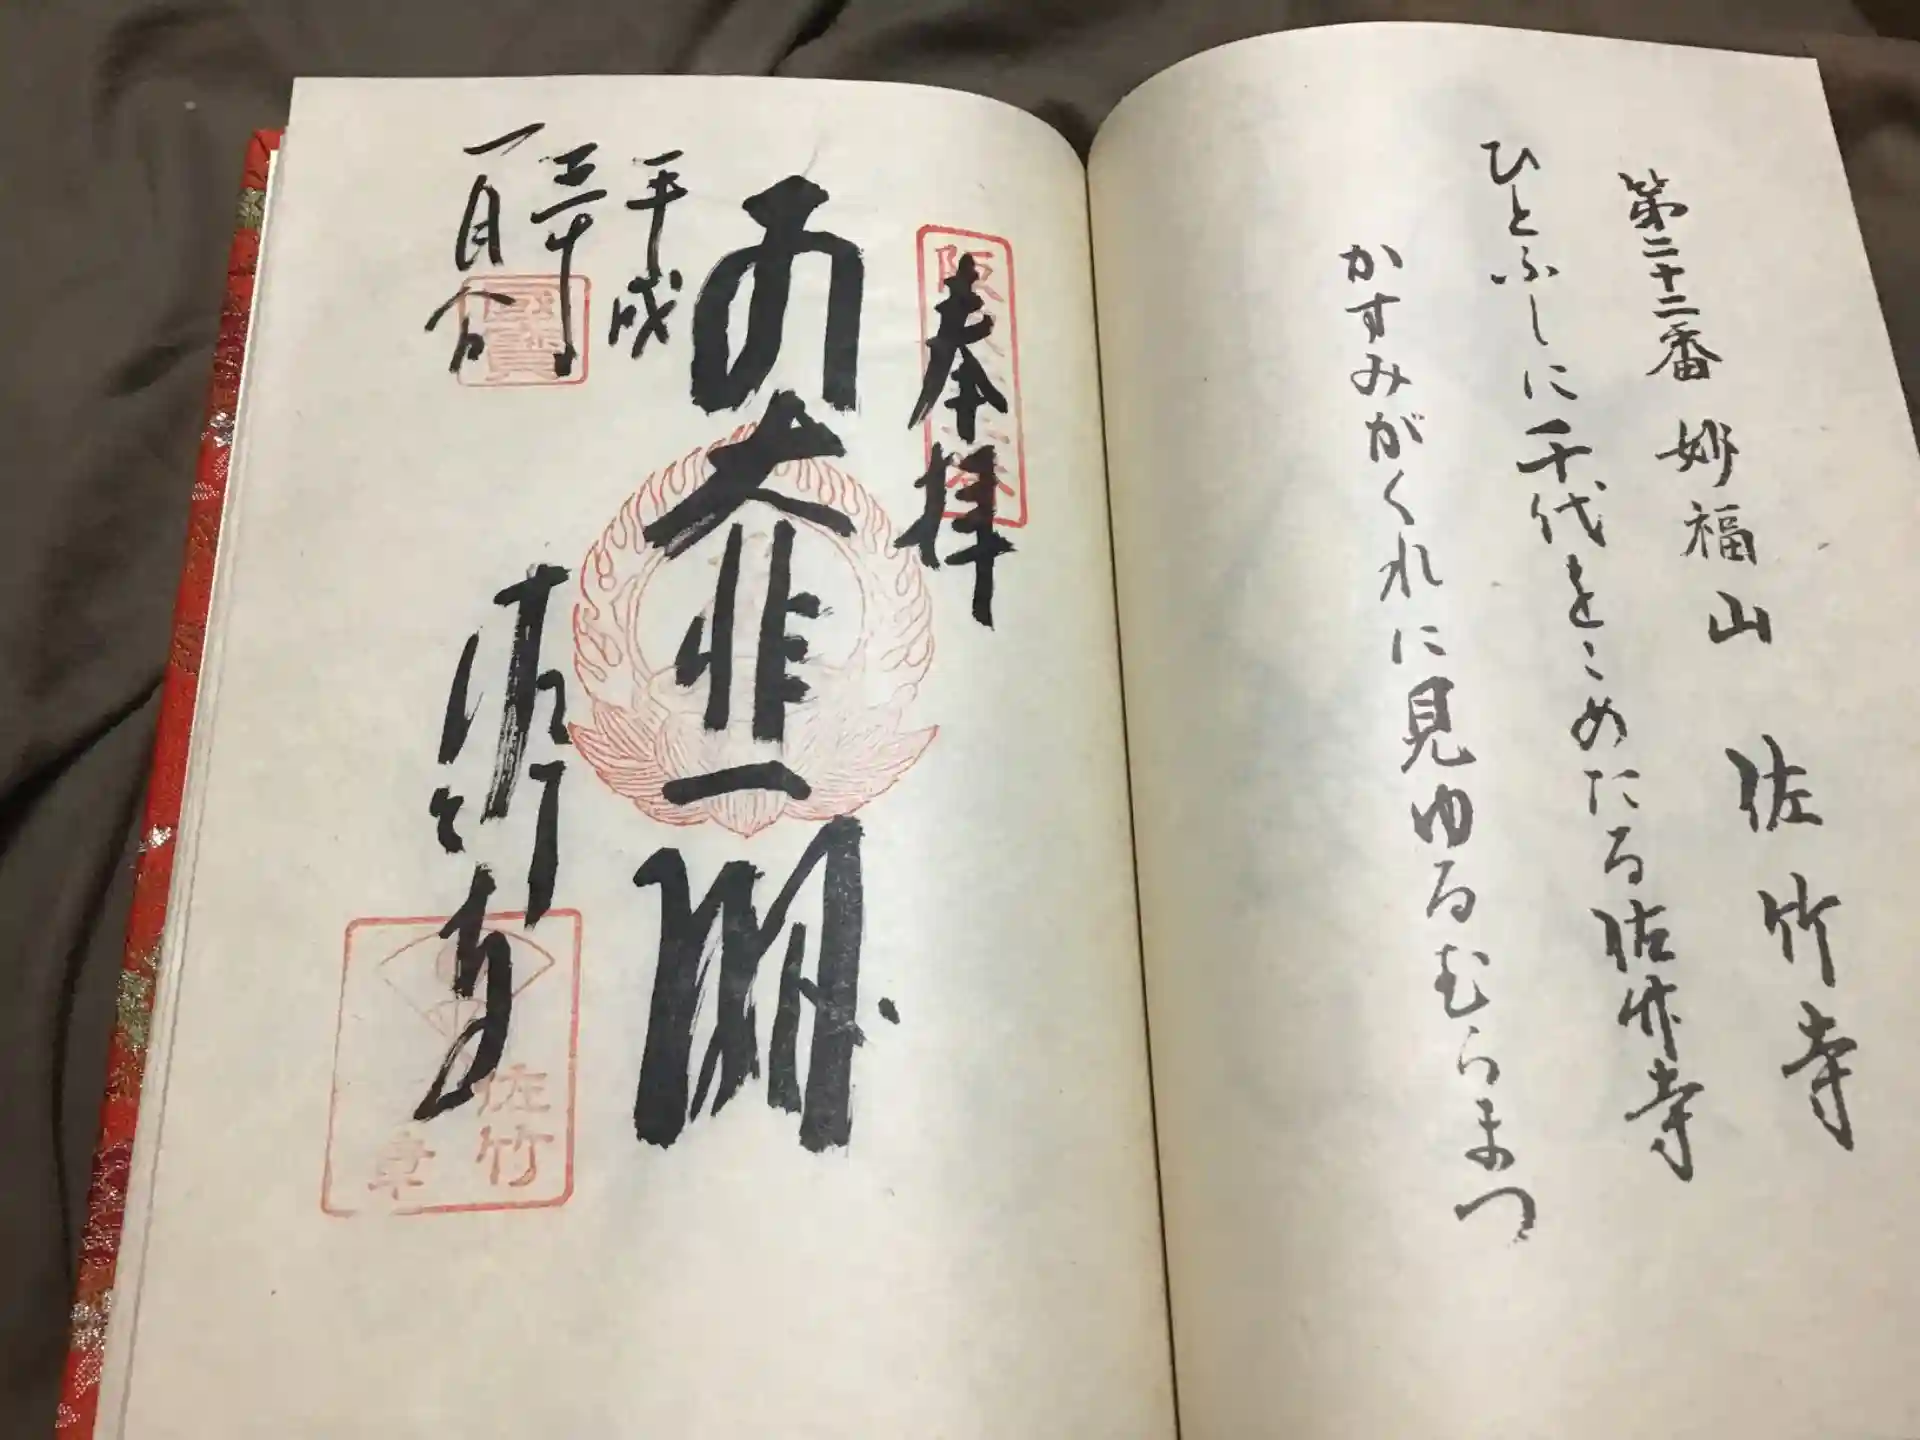 第二十二番 妙福山 佐竹寺
ひとふしに千代をこめたる佐竹寺
かすみがくれに見ゆるむらまつ
奉拝
大悲閣
平成
三十
一月
佐竹寺
佐竹